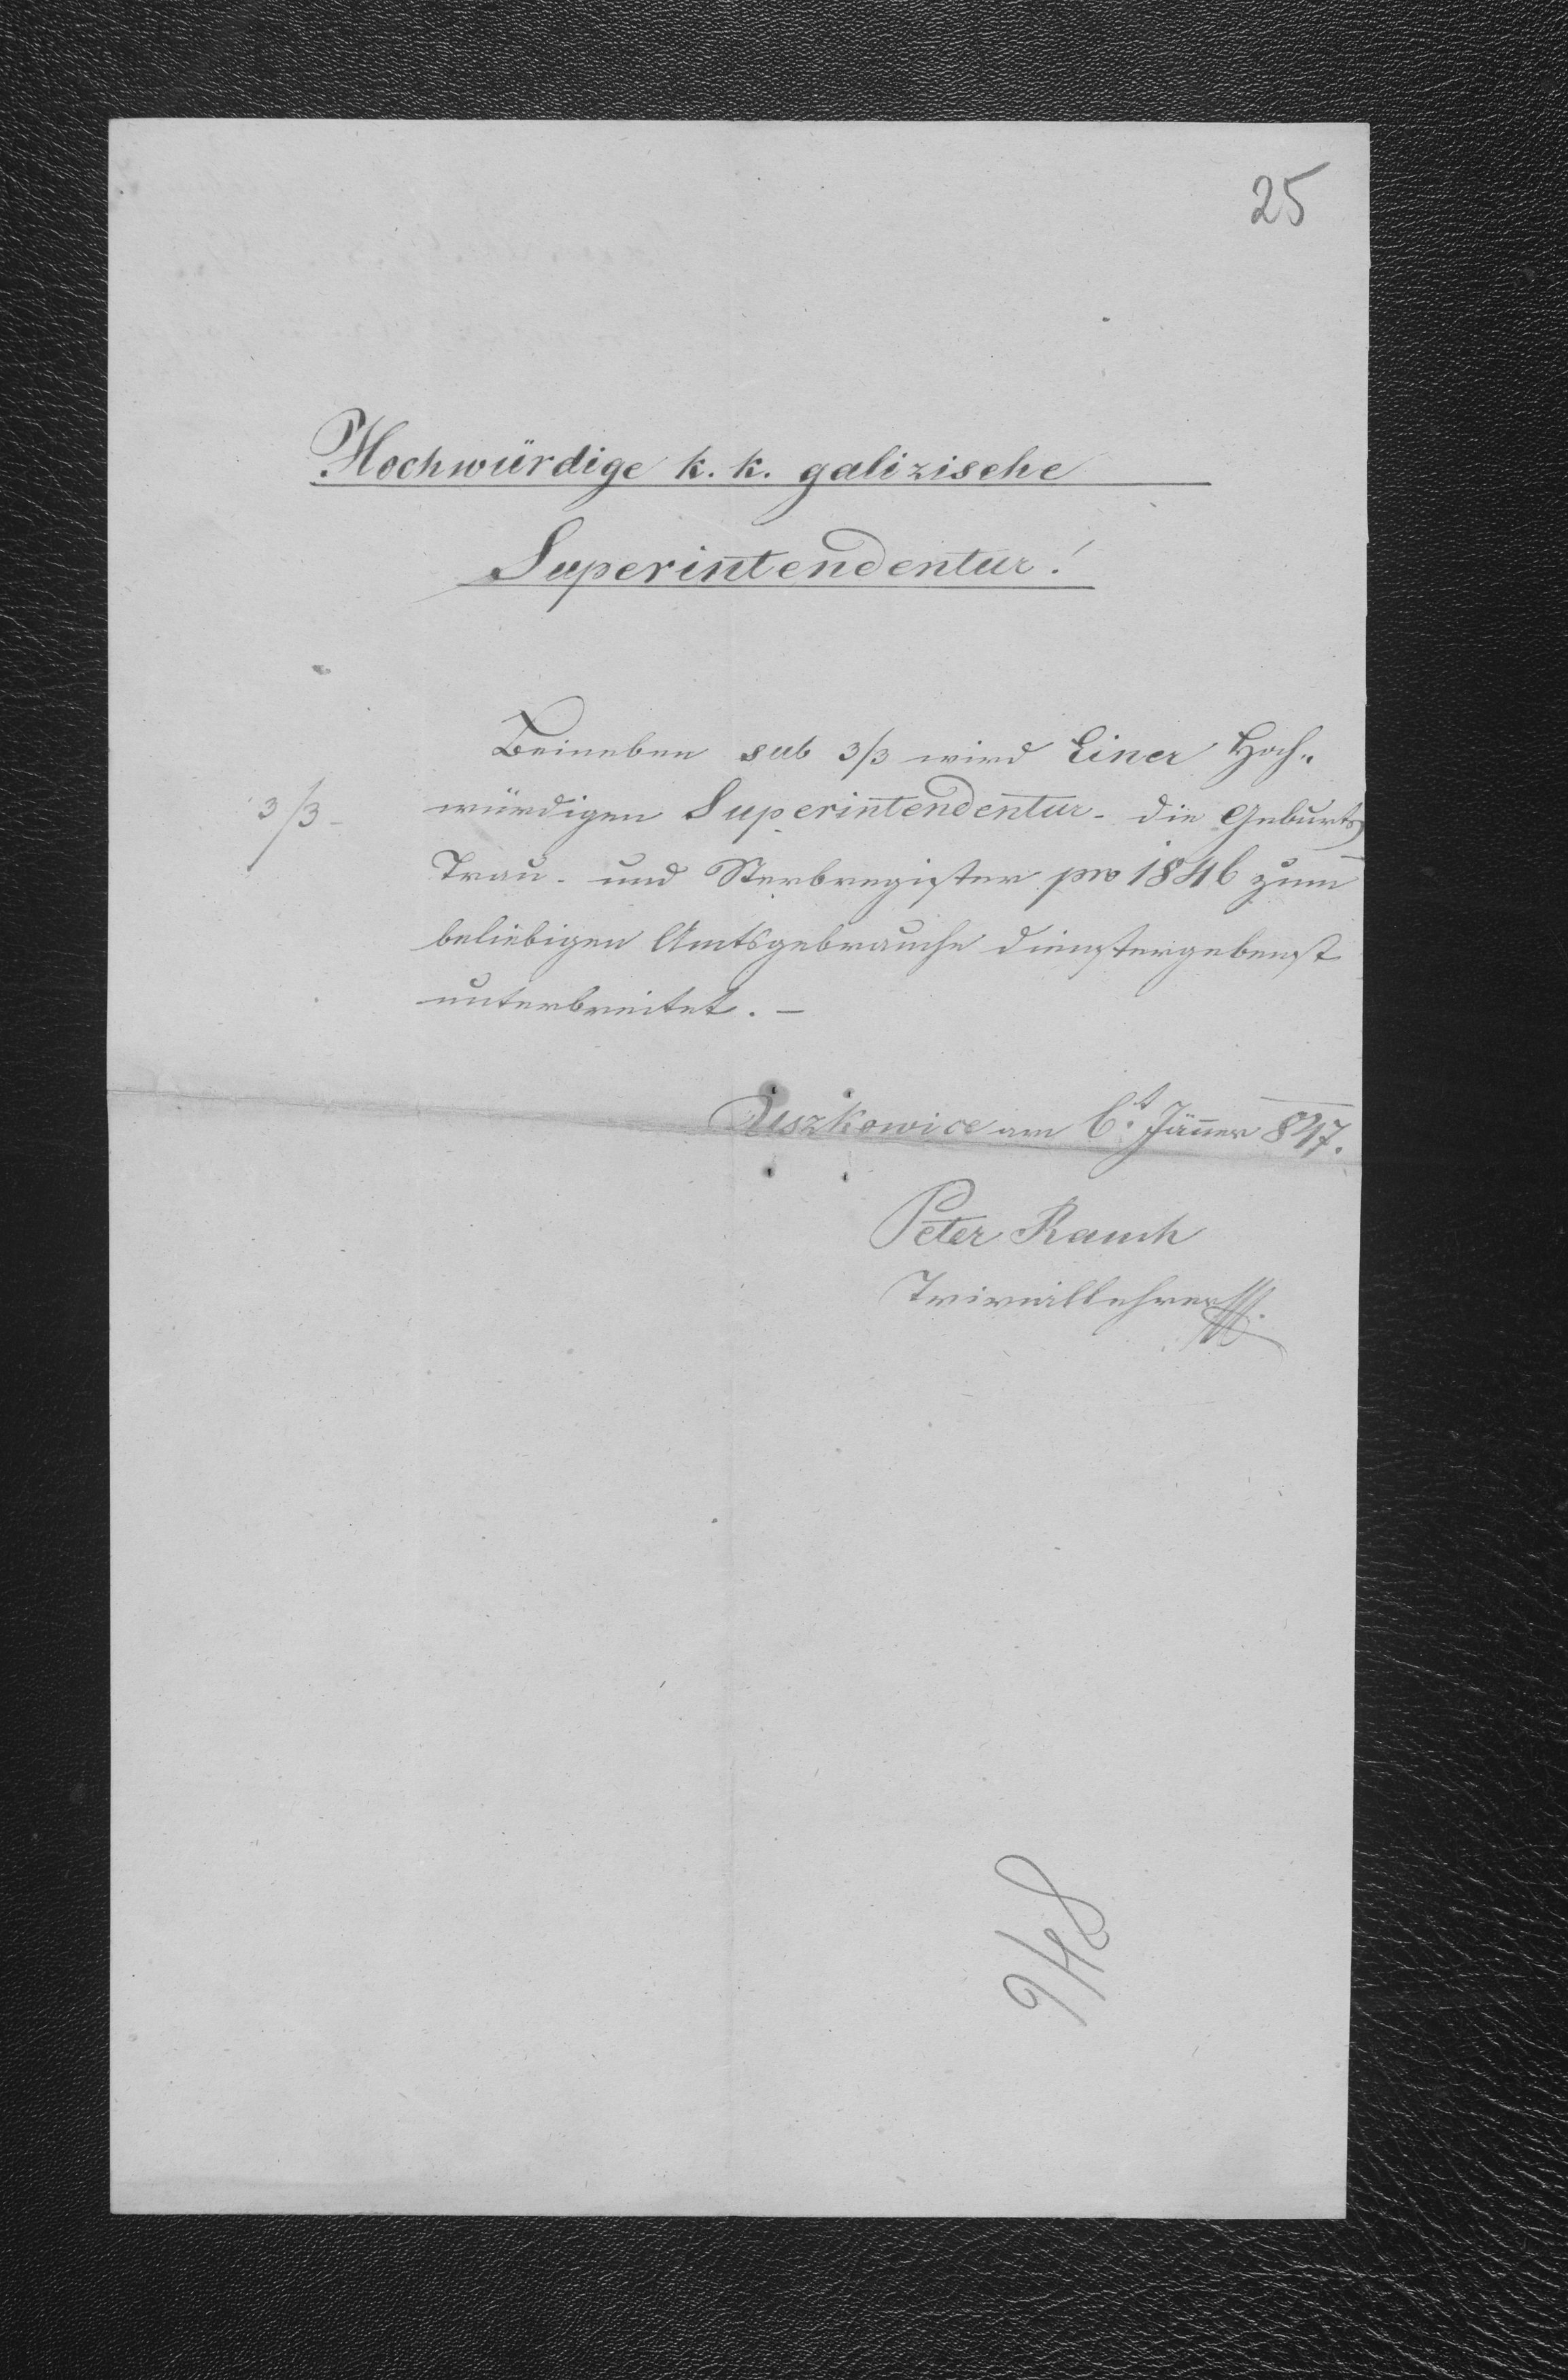 25
Hochwürdige k. k. galizische
Superintendentur!
Beineben sub 3/3 wird Einer Hoch„
3/3 -
würdigen Superintendentur - die Geburts
Trau- und Sterbregister pro 1846 zum
beliebigen Amtsgebrauche dienstergebenst
unterbreitet. -
am 6t. Jänner 847.
Peter Rauch
Triviallehrer
948